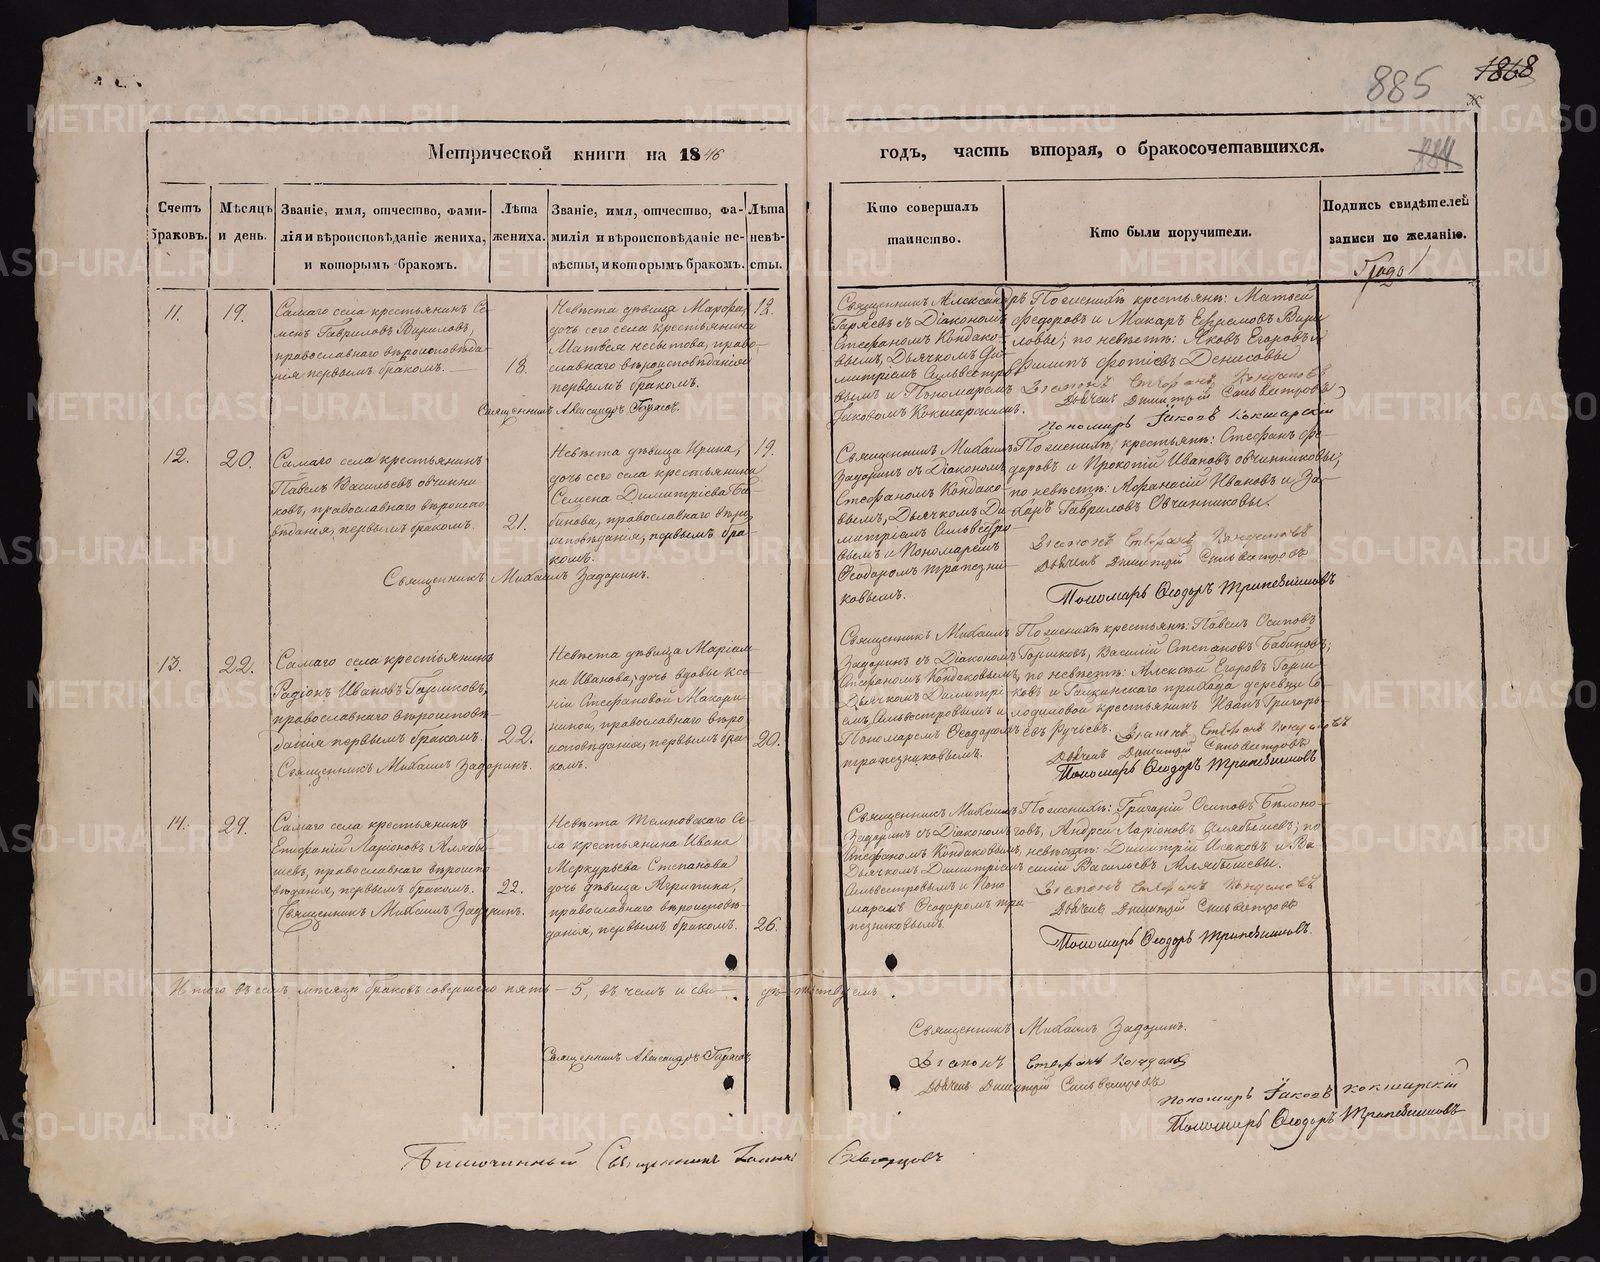 885
1868
884
Метрической книги на 1846
годъ, часть вторая, о бракосочетавшихся.
Счетъ браковъ.
Мѣсяцъ и день.
Званіе, имя, отчество, фами-
лія и вѣроисповѣданіе жениха,
и которымъ бракомъ.
Лѣта
жениха.
Званіе, имя, отчество, фа-
милія и вѣроисповѣданіе не-
вѣсты, и которымъ бракомъ.
Лѣта
невѣ-
сты.
Кто совершалъ
таинство.
Кто были поручители.
Подпись свидѣтелей
записи по желанію.
11.
19.
Самаго села крестьянинъ Се-
менъ Гавриловъ
православнаго вѣроисповѣда-
нія первымъ бракомъ.
18.
Невѣста дѣвица Марфа,
дочь сего села крестьянина
Матвея православнаго
вѣроисповѣданія
первымъ бракомъ.
18.
Священникъ Александръ
съ Діакономъ
Стефаномъ Кондако-
вымъ, Дьячкомъ Ди-
митріемъ Сильвестро-
вымъ и Пономаремъ
Іаковомъ Кокшарскимъ.
По женихѣ крестьяне: Матвей
Федоровъ и Макаръ Ефремовъ
по невѣстѣ: Яковъ Егоровъ и
Филипъ Фотіевъ Денисовы
Діаконъ Стефанъ Кондаковъ
Дьячекъ Димитрій Сильвестровъ
Пономарь Іаковъ Кокшарскій
Священникъ Александръ
12.
20.
Самаго села крестьянинъ
Павелъ Васильевъ Овчинни
ковъ, православнаго вѣроиспо-
вѣданія, первымъ бракомъ.
21.
Невѣста дѣвица Ирина,
дочь сего села крестьянина
Семена Димитріева Ба-
бинова, православнаго вѣро-
исповѣданія, первымъ бра-
комъ.
19.
Священникъ Михаилъ Задоринъ.
Священникъ Михаилъ
Задоринъ съ Діакономъ
Стефаномъ Кондако-
вымъ, Дьячкомъ Ди
митріемъ Сильвестро-
вымъ и Пономаремъ
Ѳеодоромъ Трапезни-
ковымъ.
По женихѣ, крестьяне: Стефанъ Фе-
доровъ и Прокопій Ивановъ Овчинниковы;
по невѣстѣ: Афанасій Ивановъ и За-
харъ Гавриловъ Овчинниковы.
Діаконъ Стефанъ Кондаковъ
Дьячекъ Димитрій Сильвестровъ
Пономарь Ѳеодоръ Трапезниковъ
13.
22.
Самаго села крестьянинъ
Радіонъ Ивановъ Горшковъ,
православнаго вѣроисповѣ-
данія первымъ бракомъ.
22.
Священникъ Михаилъ Задоринъ.
Невѣста дѣвица Маріам-
на Иванова, дочь вдовы Ксе-
ніи Стефановой
православнаго вѣро
исповѣданія, первымъ бра-
комъ.
20.
Священникъ Михаилъ
Задоринъ съ Діакономъ
Стефаномъ Кондаковымъ,
Дьячкомъ Димитрі-
емъ Сильвестровымъ и
Пономаремъ Ѳеодоромъ
Трапезниковымъ.
По женихѣ крестьяне: Павелъ Осиповъ
Горшковъ, Василій Степановъ Бабиновъ;
по невѣстѣ: Алексѣй Егоровъ Горш-
ковъ и прихода деревни Со-
лодиловой крестьянинъ Иванъ Григорь-
евъ Ручьевъ. Діаконъ Стефанъ Кондаковъ
Дьячекъ Димитрій Сильвестровъ
Пономарь Ѳеодоръ Трапезниковъ
14.
29.
Самаго села крестьянинъ
Епифаній Ларіоновъ Алябы-
шевъ, православнаго вѣроиспо
вѣданія, первымъ бракомъ.
22.
Священникъ Михаилъ Задоринъ.
Невѣста Темновскаго Се-
ла крестьянина Ивана
Меркурьева Степанова
дочь дѣвица Агрипина,
православнаго вѣроисповѣ-
данія, первымъ бракомъ.
26.
Священникъ Михаилъ
Задоринъ съ Діакономъ
Стефаномъ Кондаковымъ,
Дьячкомъ Димитріемъ
Сильвестровымъ и Поно
маремъ Ѳеодоромъ Тра-
пезниковымъ.
По женихѣ: Григорій Осиповъ Бѣлоно-
говъ, Андрей Ларіоновъ Алябышевъ; по
невѣстѣ: Димитрій Исаковъ и Ва-
силій Васильевъ Алябышевы.
Діаконъ Стефанъ Кондаковъ
Дьячекъ Димитрій Сильвестровъ
Пономарь Ѳеодоръ Трапезниковъ.
Итого въ семъ мѣсяцѣ браковъ совершено пять – 5, въ чемъ и сви-
дѣтельствуемъ.
Священникъ Михаилъ Задоринъ.
Священникъ Александръ
Діаконъ Стефанъ Кондаковъ
Дьячекъ Димитрій Сильвестровъ
Пономарь Іаковъ Кокшарскій
Пономарь Ѳеодоръ Трапезниковъ
Благочинный Священникъ Іоаннъ Скворцовъ
METRIKI.GASO-URAL.RU